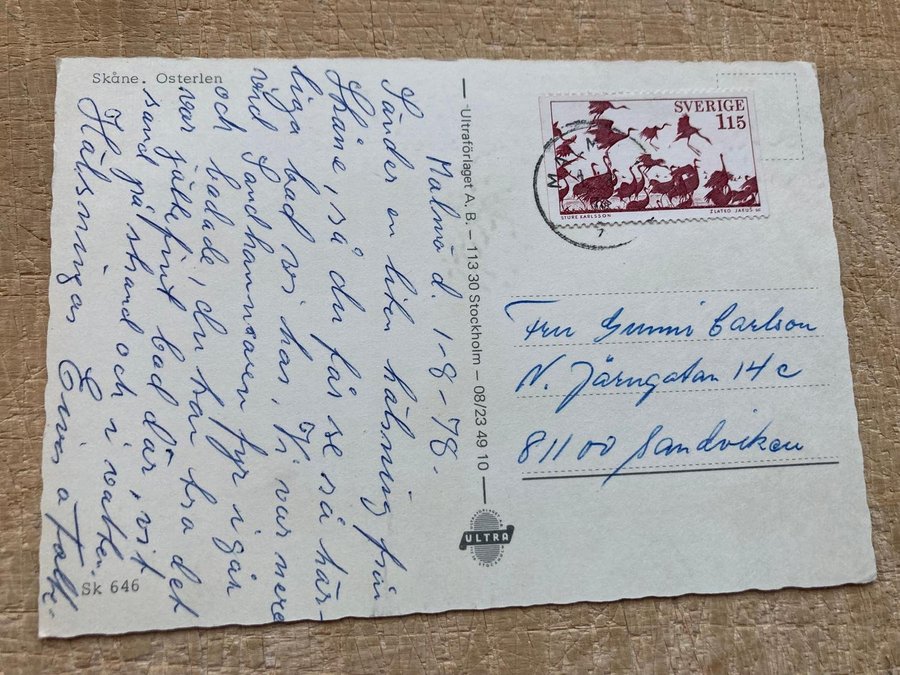 Skåne. Österlen
Malmö d. 1-8-78.
Sänder en liten hälsning från
Skåne, så du får se så här-
liga bad vi har. Vi var nere
vid Sandhammaren fyr i går
och badade, du har bra det
var jättefint bad där, vit
sand på strand och i vatten.
Hälsningar
Elvir o Folke.
Sk 646
Ultraförlaget A. B. – 113 30 Stockholm – 08/23 49 10
ULTRA
SVERIGE
115
STURE KARLSSON
ZLATKO JAKUS SC
MALM
Fru Gunni Carlson
N. Järngatan 14 c
811 00 Sandviken